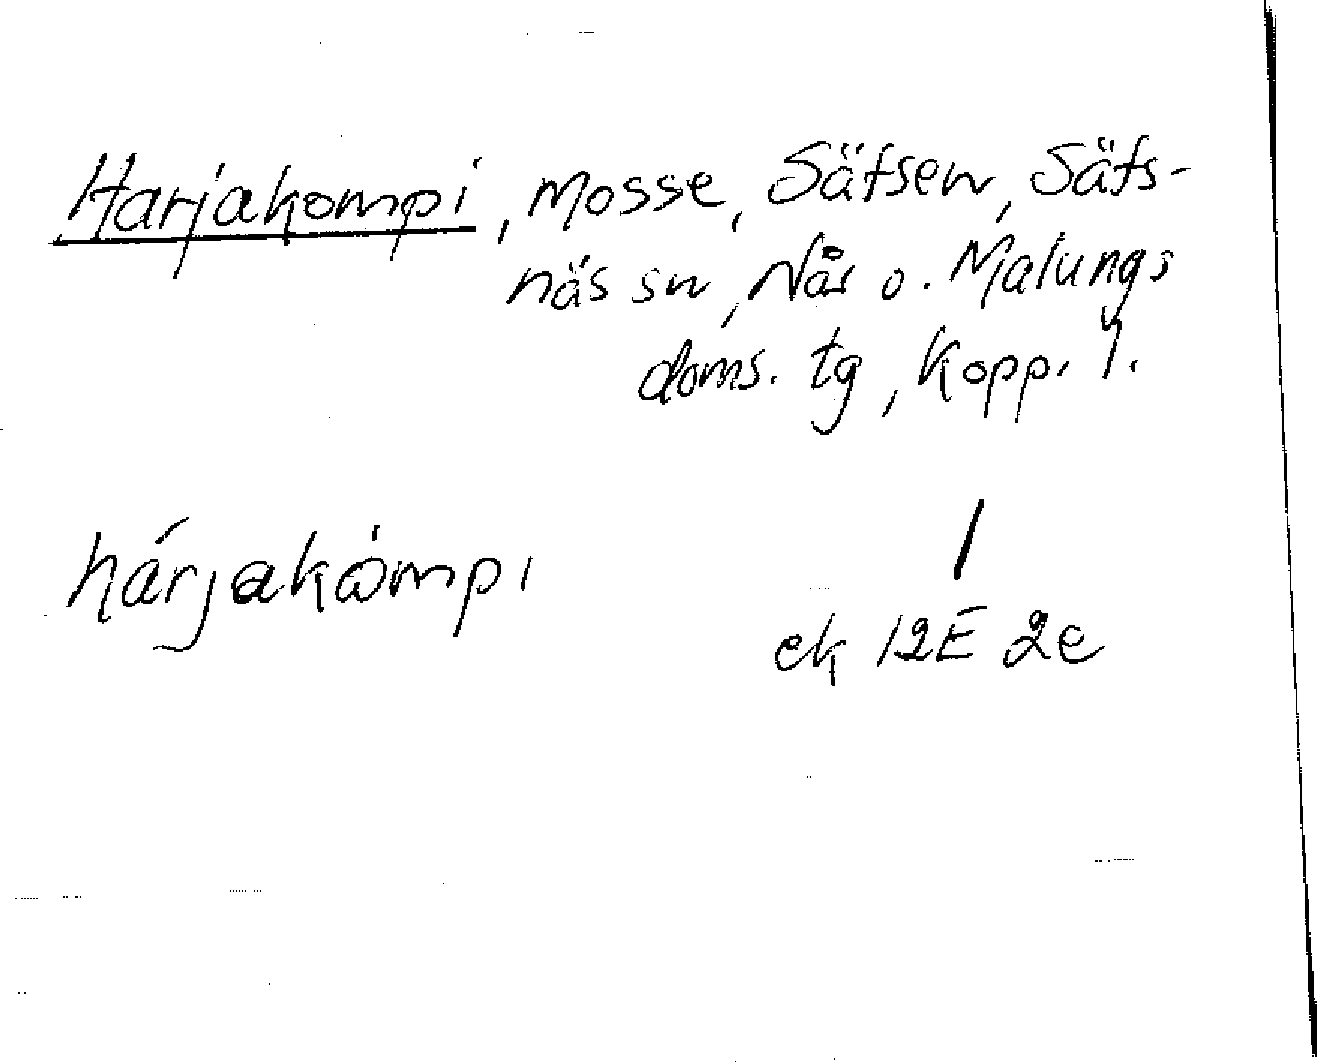 Harjakompi, Mosse, Säfsen, Säfs-
näs sn, Nås o. Malungs
doms. tg, Kopp. l.
hárjakòmpi
ek 12E 2e